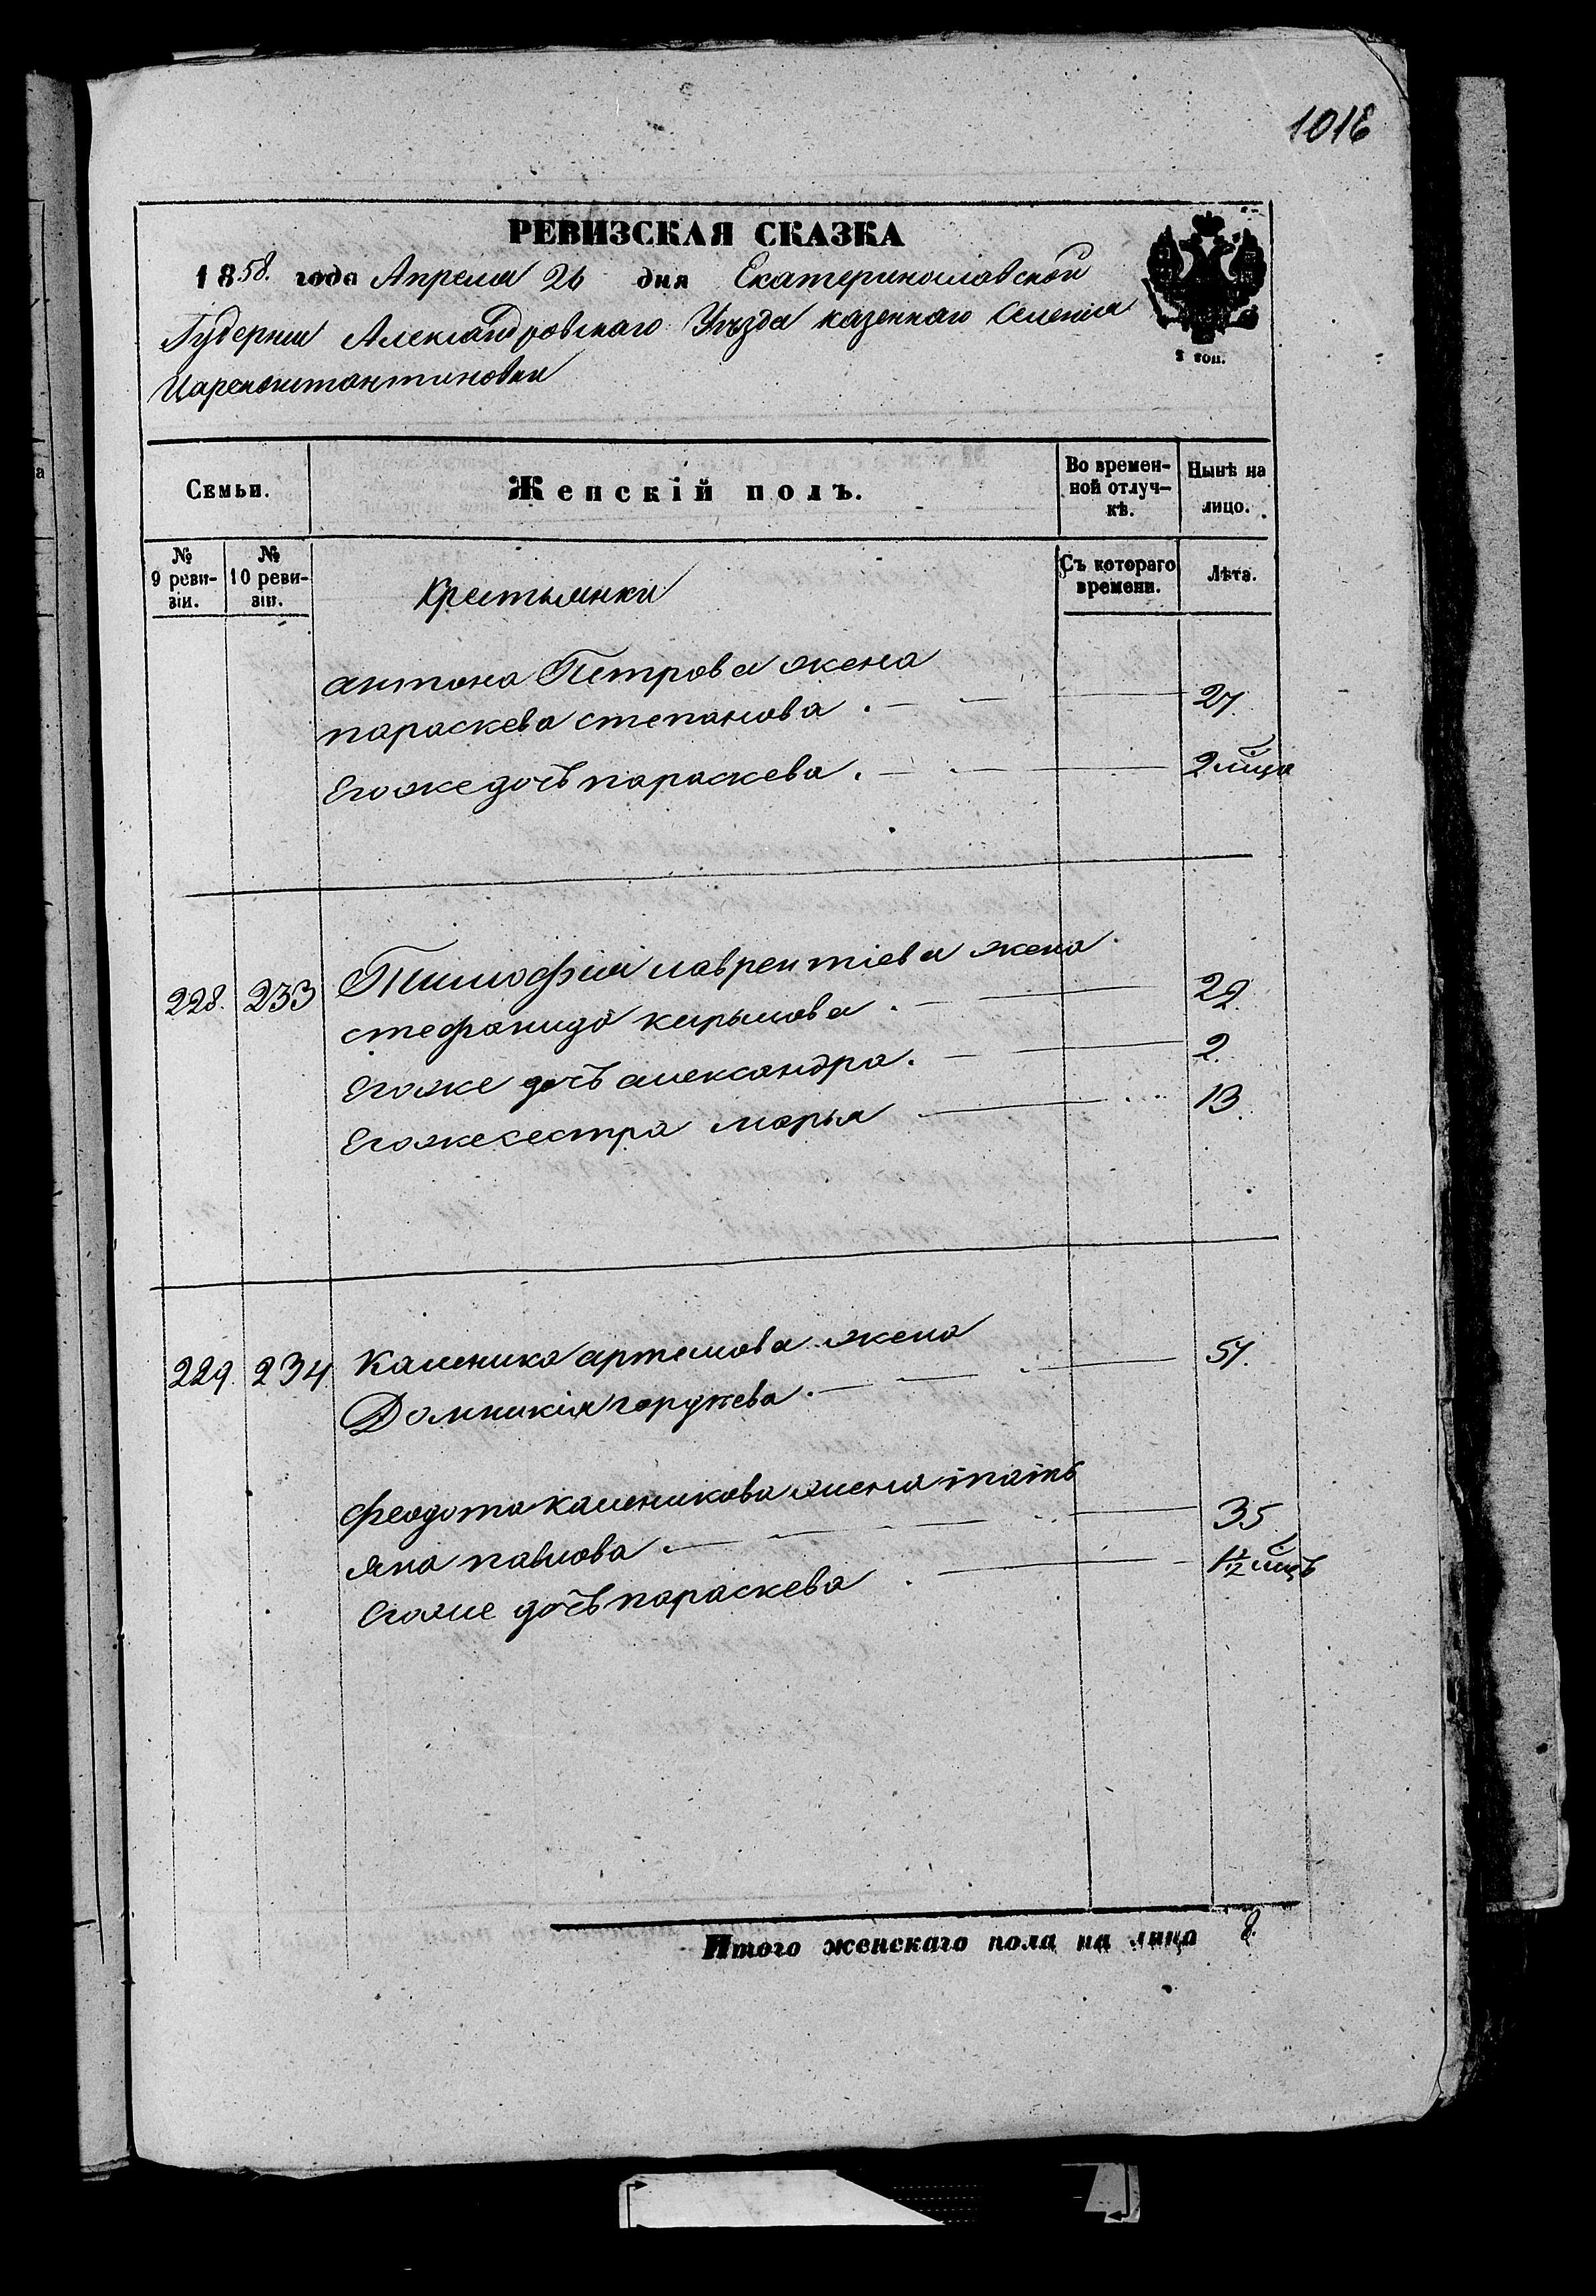 1016
РЕВИЗСКАЯ СКАЗКА
1858. года Апреля 26 дня Екатеринославской
Губернии Александровскаго Уѣзда казеннаго Селенія
Цареконстантиновки
2 коп.
Семьи. Женскій полъ. Во времен-ной отлуч-кѣ. Нынѣ на лицо.
№ 9 реви-зіи. № 10 реви-зіи. Крестьянки Съ котораго времени. Лѣта.
антона Петрова жена
параскева степанова. 27.
Егоже дочь параскева. 2 мца
228. 233 Тимофея лаврентіева жена
стефанида кирылова. 22.
Егоже дочь александра. 2.
Егоже сестра марья 13.
229. 234. Каленика артемова жена 57.
Домникія гордѣева.
феодота каленикова жена тать
яна павлова. 35
Егоже дочь параскева. 1 1/2 мцъ
Итого женскаго пола на лицо 8.